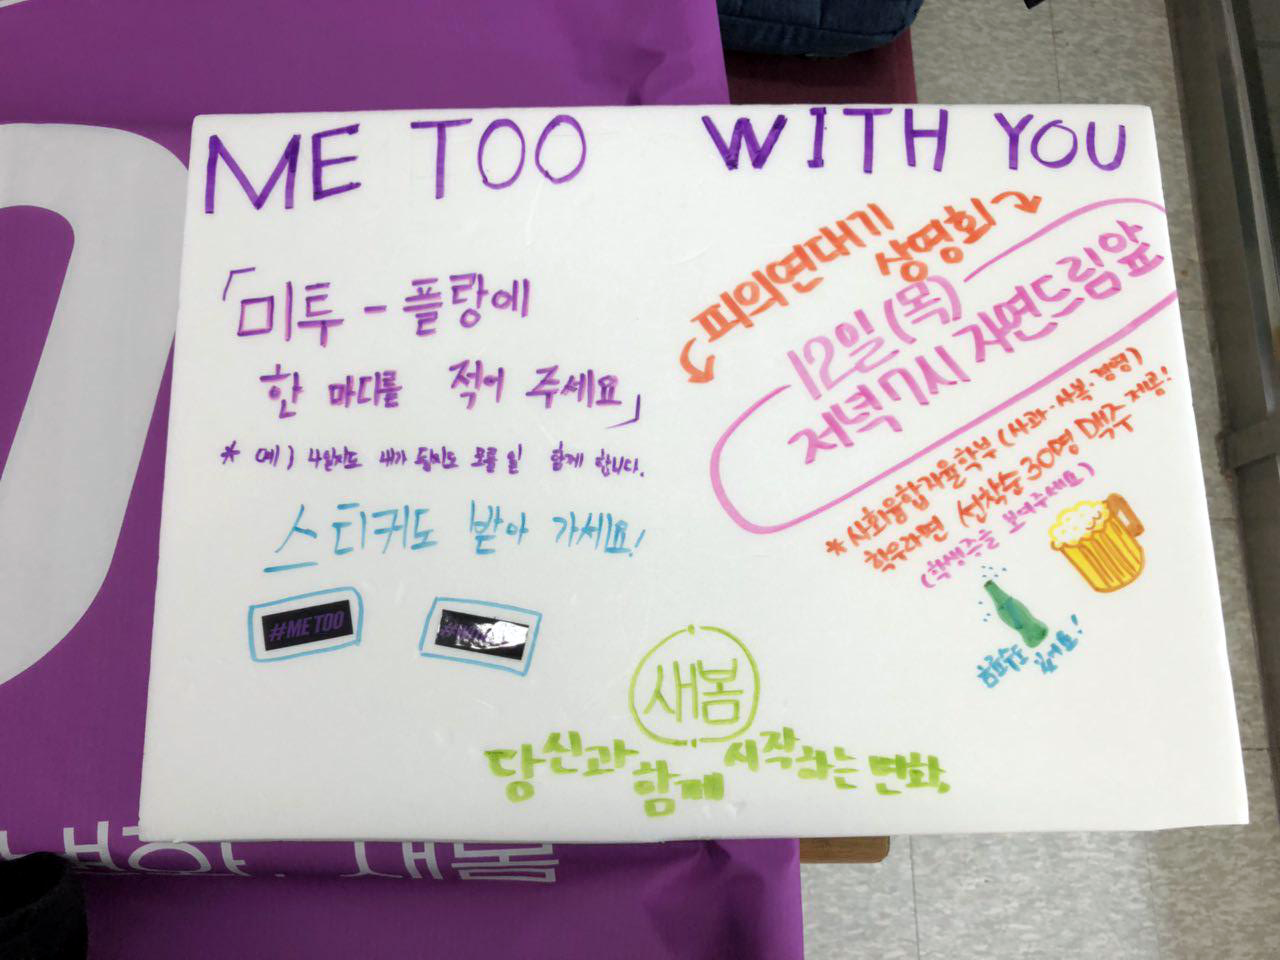 ME TOO WITH YOU
「미투-플랑에
한 마디를 적어 주세요」
* 예) 나일지도 내가 될지도 모를 일 함께 합니다.
스티커도 받아 가세요!
#ME TOO
피의연대기
상영회
12일(목)
저녁7시 자연드림앞
*사회융합자율학부(사과·사복·경영)
학우라면 선착순30명 맥주 제공!
(학생증을 보여주세요)
음료수도
있어요!
새봄
당신과 함께 시작하는 변화,
새봄